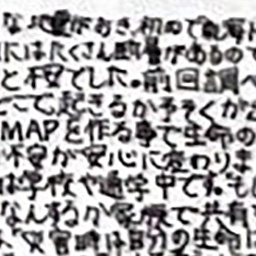 な地震がおき、初めて
にはたくさん断層があるので
と不安でした。前回調べ
どこで起きるか予そくが
MAPを作る事で生命の
不安が安心に変わりま
は学校や通学中です。もし
なんするか家族で共有
災害時は自分の生命は